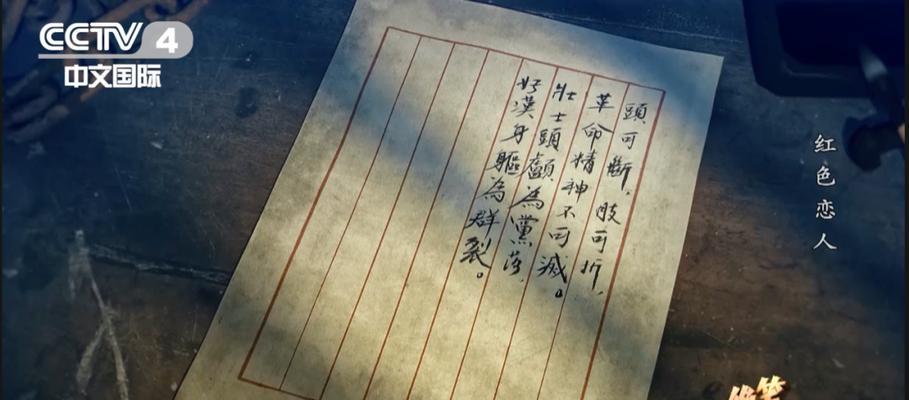 CCTV 4
中文国际
頭可斷，肢可折，
革命精神不可滅。
壯士頭顱為黨落，
好漢身軀為群裂。
红色恋人